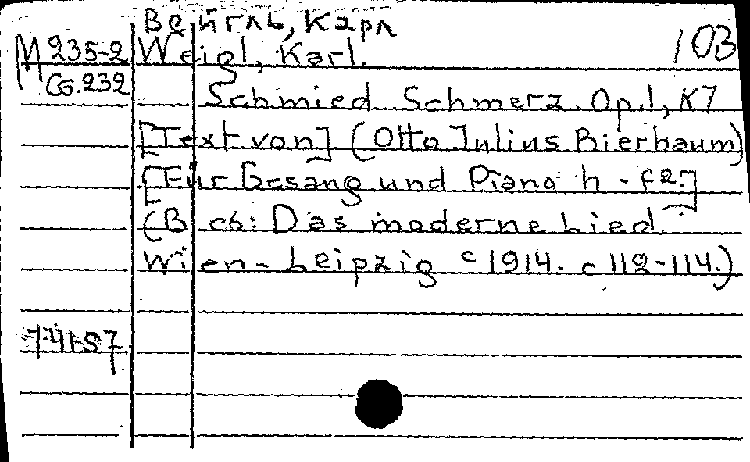 Вейгль, Карл
М 235-2 Weigl, Karl. 103
Сб.232
Schmied Schmerz. Op.1, K7
[Text von] (Otto Julius Bierbaum)
[Für Gesang und Piano h - f2.]
(В сб: Das moderne Lied.
Wien-Leipzig c 1914. c 112-114.)